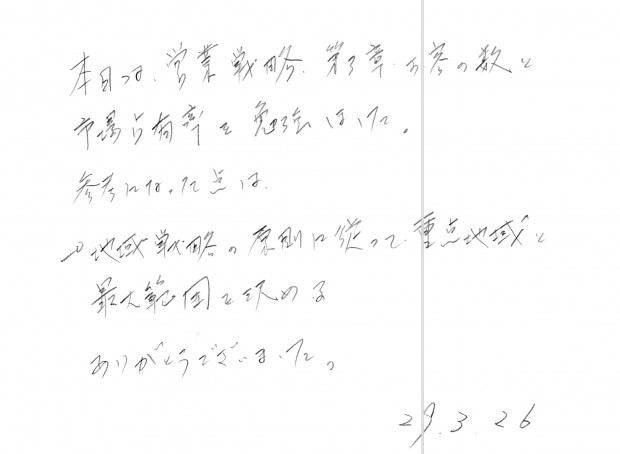 本日は、営業戦略、第3章 お客の数と
市場占有率を勉強しました。
参考になった点は
地域戦略の原則に従って、重点地域と
最大範囲を決める
ありがとうございました。
29.3.26